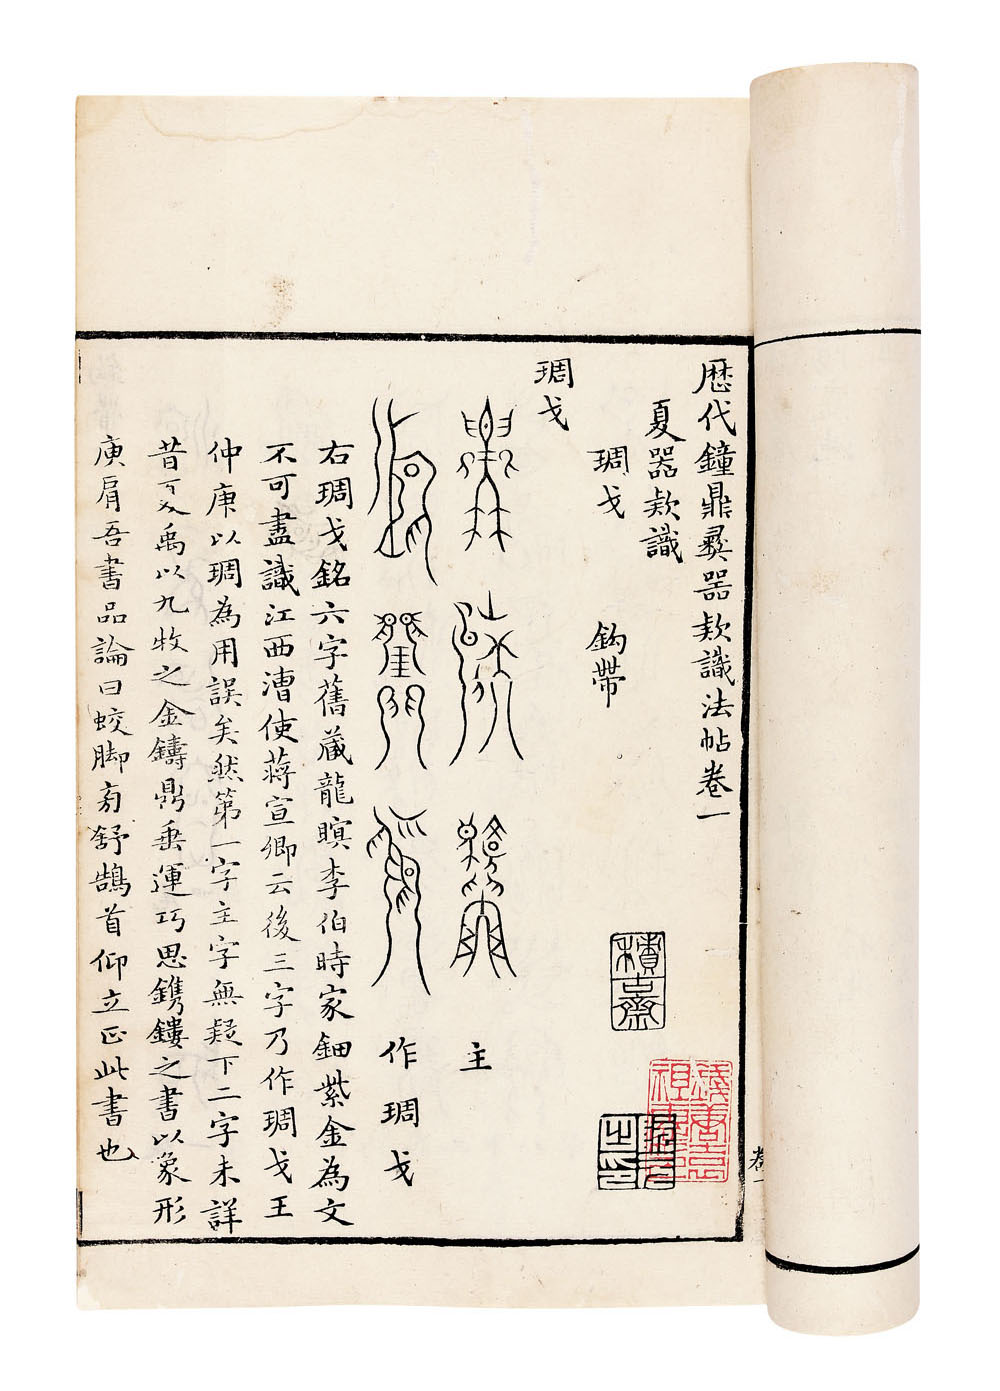 歴代鐘鼎彝器款識法帖卷一
夏器款識
琱戈 鈎帶
琱戈
主
作琱戈
右琱戈銘六字舊蔵龍瞑李伯時家鈿紫金為文
不可盡識江西漕使蔣宣卿云後三字乃作琱戈王
仲庚以琱為用誤矣然第一字主字無疑下二字未詳
昔夏禹以九牧之金鑄鼎垂運巧思鐫鏤之書以象形
庾肩吾書品論曰蛟脚舒鵠首仰立正此書也
積古齋
卷一